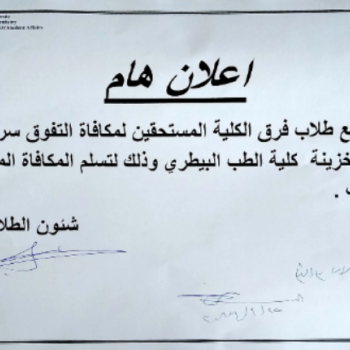 اعلان هام
ع طلاب فرق الكلية المستحقين لمكافاة التفوق سر
خزينة كلية الطب البيطري وذلك لتسلم المكافاة الم
.
شئون الطلا